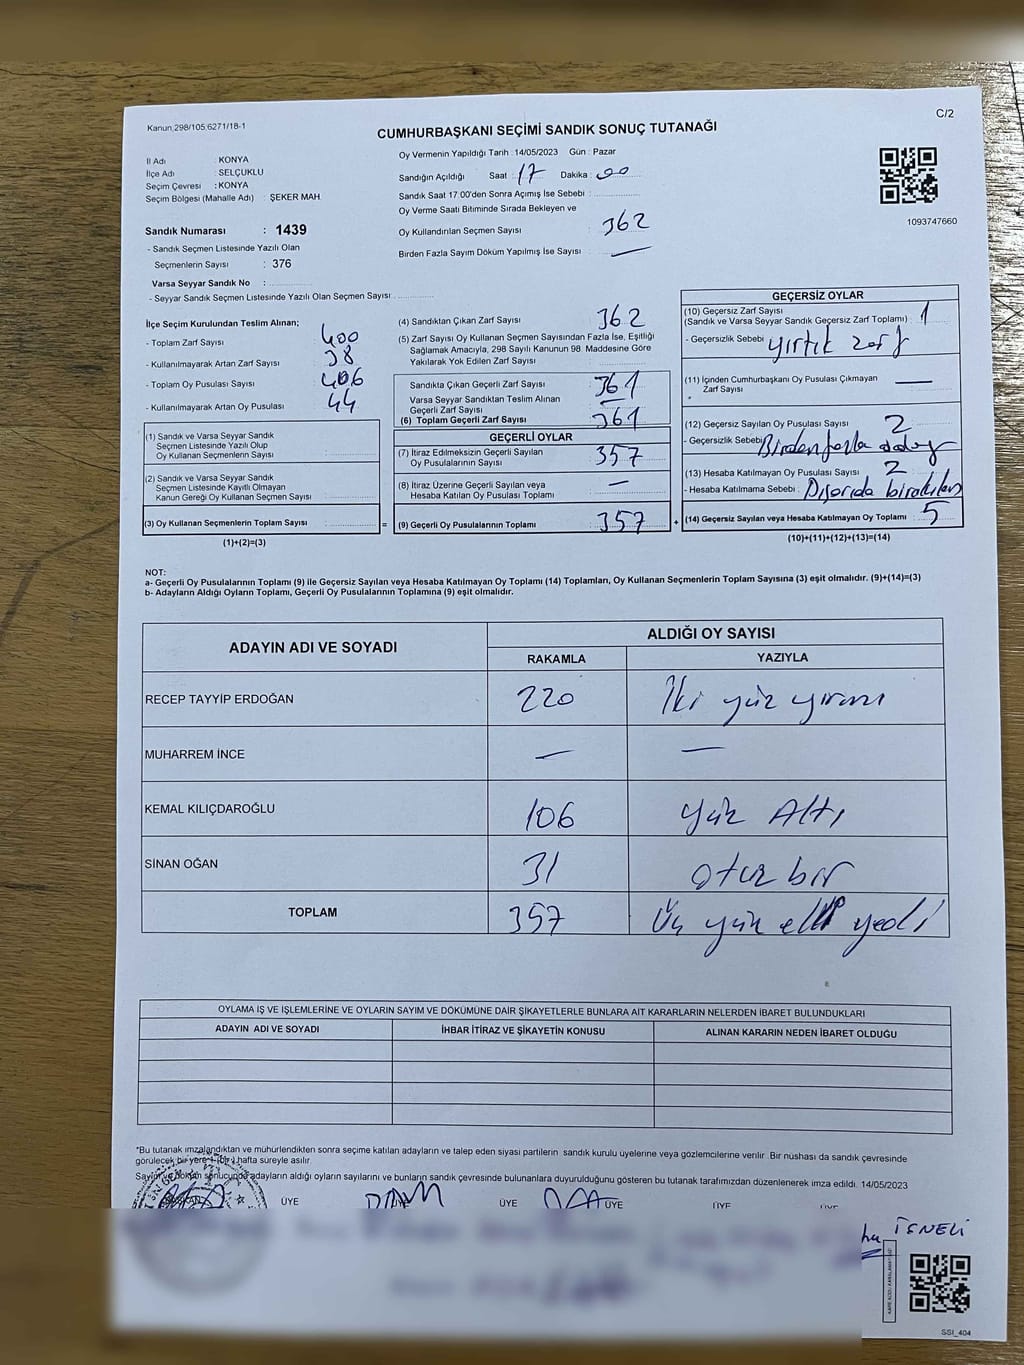 Kanun,298/105,6271/18-1
C/2
CUMHURBAŞKANI SEÇİMİ SANDIK SONUÇ TUTANAĞI
İl Adı : KONYA
İlçe Adı : SELÇUKLU
Seçim Çevresi : KONYA
Seçim Bölgesi (Mahalle Adı) : ŞEKER MAH
Sandık Numarası : 1439
- Sandık Seçmen Listesinde Yazılı Olan
Seçmenlerin Sayısı : 376
Varsa Seyyar Sandık No :
- Seyyar Sandık Seçmen Listesinde Yazılı Olan Seçmen Sayısı
Oy Vermenin Yapıldığı Tarih : 14/05/2023 Gün : Pazar
Sandığın Açıldığı Saat : 17 Dakika : 00
Sandık Saat 17:00'den Sonra Açımış İse Sebebi :
Oy Verme Saati Bitiminde Sırada Bekleyen ve
Oy Kullandırılan Seçmen Sayısı : 362
Birden Fazla Sayım Döküm Yapılmış İse Sayısı : —
1093747660
İlçe Seçim Kurulundan Teslim Alınan;
- Toplam Zarf Sayısı : 400
- Kullanılmayarak Artan Zarf Sayısı : 38
- Toplam Oy Pusulası Sayısı : 406
- Kullanılmayarak Artan Oy Pusulası : 44
(1) Sandık ve Varsa Seyyar Sandık
Seçmen Listesinde Yazılı Olup
Oy Kullanan Seçmenlerin Sayısı :
(2) Sandık ve Varsa Seyyar Sandık
Seçmen Listesinde Kayıtlı Olmayan
Kanun Gereği Oy Kullanan Seçmen Sayısı :
(3) Oy Kullanan Seçmenlerin Toplam Sayısı : =
(1)+(2)=(3)
(4) Sandıktan Çıkan Zarf Sayısı : 362
(5) Zarf Sayısı Oy Kullanan Seçmen Sayısından Fazla İse, Eşitliği
Sağlamak Amacıyla, 298 Sayılı Kanunun 98. Maddesine Göre
Yakılarak Yok Edilen Zarf Sayısı :
Sandıkta Çıkan Geçerli Zarf Sayısı : 361
Varsa Seyyar Sandıktan Teslim Alınan
Geçerli Zarf Sayısı : —
(6) Toplam Geçerli Zarf Sayısı : 361
GEÇERLİ OYLAR
(7) İtiraz Edilmeksizin Geçerli Sayılan
Oy Pusulalarının Sayısı : 357
(8) İtiraz Üzerine Geçerli Sayılan veya
Hesaba Katılan Oy Pusulası Toplamı : —
(9) Geçerli Oy Pusulalarının Toplamı : 357 +
GEÇERSİZ OYLAR
(10) Geçersiz Zarf Sayısı
(Sandık ve Varsa Seyyar Sandık Geçersiz Zarf Toplamı) : 1
- Geçersizlik Sebebi : yırtık zarf
(11) İçinden Cumhurbaşkanı Oy Pusulası Çıkmayan
Zarf Sayısı : —
(12) Geçersiz Sayılan Oy Pusulası Sayısı : 2
- Geçersizlik Sebebi : Birden fazla aday
(13) Hesaba Katılmayan Oy Pusulası Sayısı : 2
- Hesaba Katılmama Sebebi : Dışarıda bırakılan
(14) Geçersiz Sayılan veya Hesaba Katılmayan Oy Toplamı : 5
(10)+(11)+(12)+(13)=(14)
NOT:
a- Geçerli Oy Pusulalarının Toplamı (9) ile Geçersiz Sayılan veya Hesaba Katılmayan Oy Toplamı (14) Toplamları, Oy Kullanan Seçmenlerin Toplam Sayısına (3) eşit olmalıdır. (9)+(14)=(3)
b- Adayların Aldığı Oyların Toplamı, Geçerli Oy Pusulalarının Toplamına (9) eşit olmalıdır.
ADAYIN ADI VE SOYADI ALDIĞI OY SAYISI
RAKAMLA YAZIYLA
RECEP TAYYİP ERDOĞAN 220 İki yüz yirmi
MUHARREM İNCE — —
KEMAL KILIÇDAROĞLU 106 yüz Altı
SİNAN OĞAN 31 otuz bir
TOPLAM 357 Üç yüz elli yedi
OYLAMA İŞ VE İŞLEMLERİNE VE OYLARIN SAYIM VE DÖKÜMÜNE DAİR ŞİKAYETLERLE BUNLARA AİT KARARLARIN NELERDEN İBARET BULUNDUKLARI
ADAYIN ADI VE SOYADI İHBAR İTİRAZ VE ŞİKAYETİN KONUSU ALINAN KARARIN NEDEN İBARET OLDUĞU
*Bu tutanak imzalandıktan ve mühürlendikten sonra seçime katılan adayların ve talep eden siyasi partilerin sandık kurulu üyelerine veya gözlemcilerine verilir. Bir nüshası da sandık çevresinde
görülecek bir yere 1 (bir) hafta süreyle asılır.
Sayım ve döküm sonucunda adayların aldığı oyların sayılarını ve bunların sandık çevresinde bulunanlara duyurulduğunu gösteren bu tutanak tarafımızdan düzenlenerek imza edildi. 14/05/2023
BAŞKAN ÜYE ÜYE ÜYE ÜYE ÜYE
SSI_404